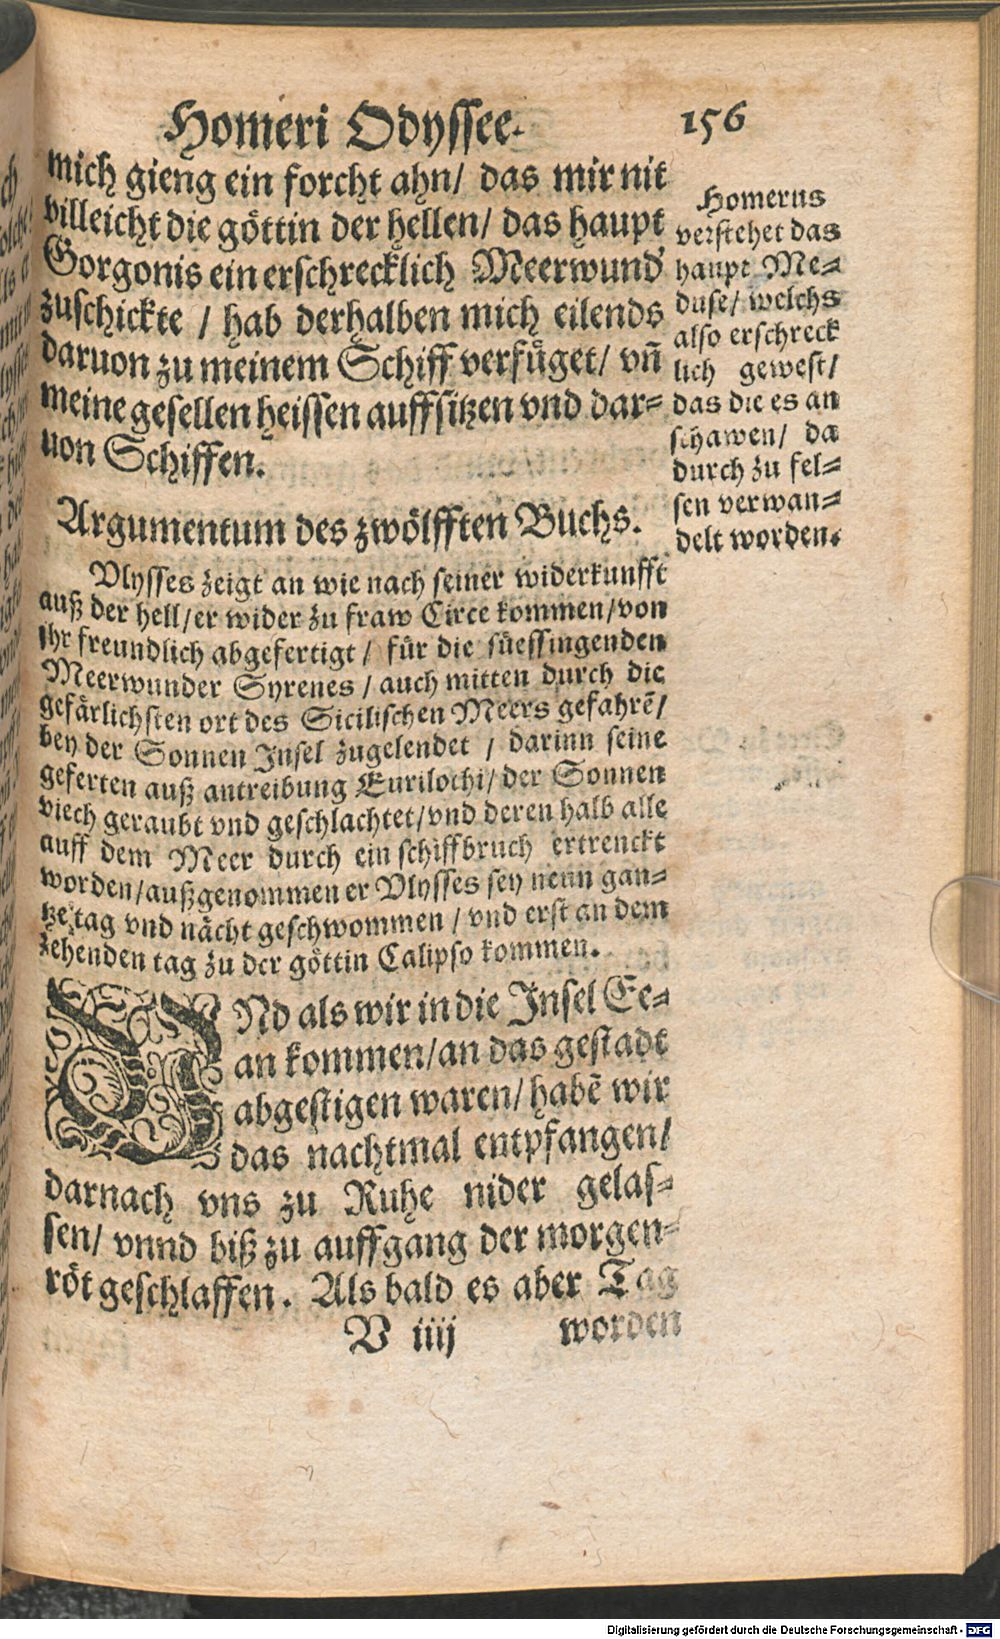 Homeri Odyssee.
156
mich gieng ein forcht ahn/ das mir nit
villeicht die göttin der hellen/ das haupt
Gorgonis ein erschrecklich Meerwund
zuschickte / hab derhalben mich eilends
daruon zu meinem Schiff verfüget/ vñ
meine gesellen heissen auffsitzen vnd dar-
uon Schiffen.
Homerus
verstehet das
haupt Me-
duse/ welchs
also erschreck
lich gewest/
das die es an
schawen/ da
durch zu fel-
sen verwan-
delt worden.
Argumentum des zwölfften Buchs.
Vlysses zeigt an wie nach seiner widerkunfft
auß der hell/ er wider zu fraw Circe kommen/ von
ihr freundlich abgefertigt / für die süessingenden
Meerwunder Syrenes / auch mitten durch die
gefärlichsten ort des Sicilischen Meers gefahrẽ/
bey der Sonnen Insel zugelendet / darinn seine
geferten auß antreibung Eurilochi/ der Sonnen
viech geraubt vnd geschlachtet/ vnd deren halb alle
auff dem Meer durch ein schiffbruch ertrenckt
worden/ außgenommen er Vlysses sey neun gan-
tze tag vnd nächt geschwommen / vnd erst an dem
zehenden tag zu der göttin Calipso kommen.
VNd als wir in die Insel Ee-
an kommen/ an das gestadt
abgestigen waren/ habẽ wir
das nachtmal entpfangen/
darnach vns zu Ruhe nider gelas-
sen/ vnnd biß zu auffgang der morgen-
röt geschlaffen. Als bald es aber Tag
V iiij
worden
Digitalisierung gefördert durch die Deutsche Forschungsgemeinschaft - DFG